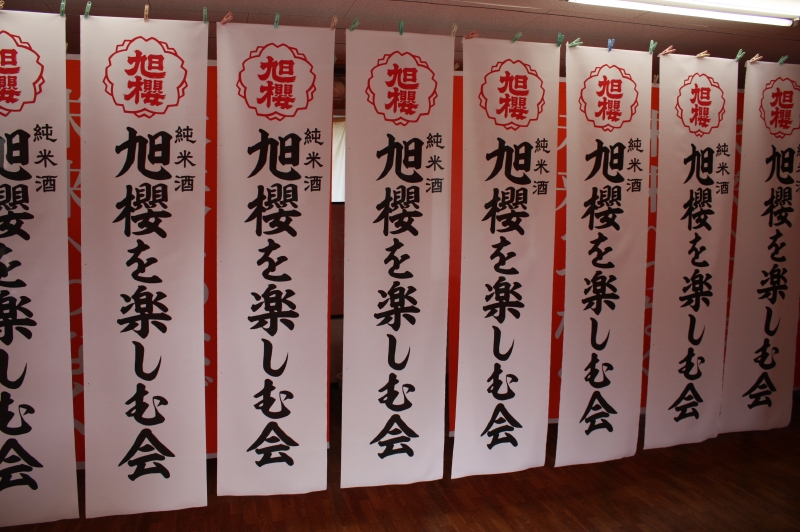 旭櫻
純米酒
旭櫻を楽しむ会
旭櫻
純米酒
旭櫻を楽しむ会
旭櫻
純米酒
旭櫻を楽しむ会
旭櫻
純米酒
旭櫻を楽しむ会
旭櫻
純米酒
旭櫻を楽しむ会
旭櫻
純米酒
旭櫻を楽しむ会
旭櫻
純米酒
旭櫻を楽しむ会
旭櫻
純米酒
旭櫻を楽しむ会